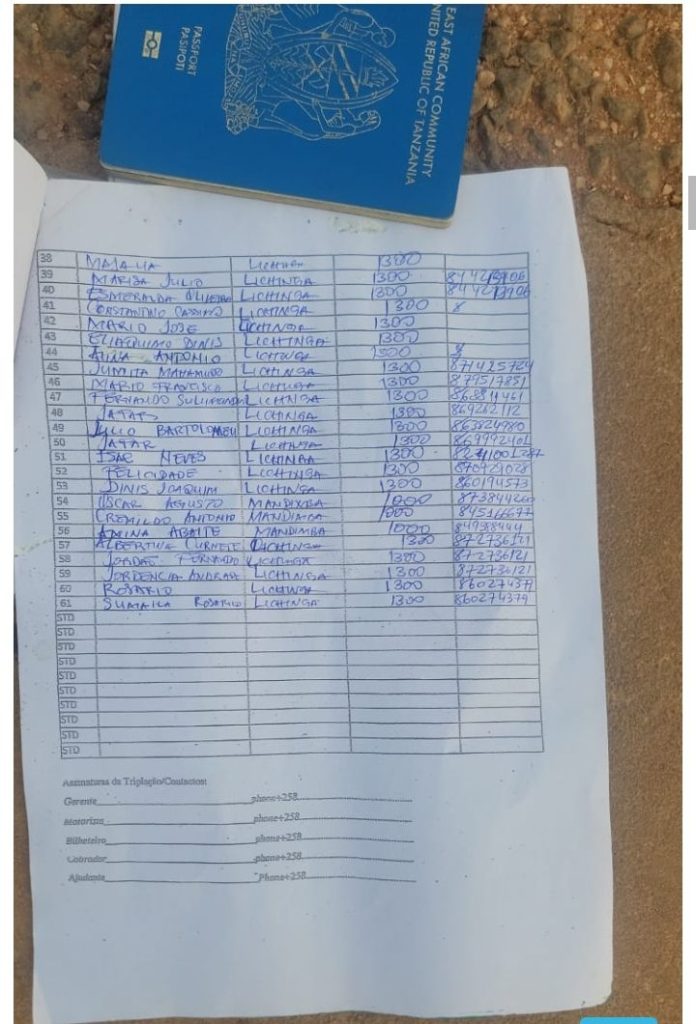 PASSPORT
PASIPOTI
EAST AFRICAN COMMUNITY
UNITED REPUBLIC OF TANZANIA
38 LICHINGA 1300
39 MARIZA JULIO LICHINGA 1300
40 ESMERALDA LICHINGA 1300
41 CONSTANTINO CASSIMO LICHINGA 1300
42 MARIO JOSE LICHINGA 1300
43 DINIS LICHINGA 1300
44 ALINA ANTONIO LICHINGA 1300
45 MAHAMUDO LICHINGA 1300 871425764
46 MARIO FRANCISCO LICHINGA 1300 879517851
47 FERNANDO LICHINGA 1300
48 LICHINGA 1300 869262112
49 JULIO BARTOLOMEU LICHINGA 1300 863824980
50 JAFAR LICHINGA 1300 869992401
51 ISAC NEVES LICHINGA 1300
52 FELICIDADE LICHINGA 1300 870921028
53 DINIS JOAQUIM LICHINGA 1300 860194573
54 OSCAR AGUSTO MANDIMBA 1000 873844260
55 CREMILDO ANTONIO MANDIMBA 1000 845166677
56 AMINA MANDIMBA 1000 849988444
57 ALBERTINA LICHINGA 1300 872736121
58 FERNANDO LICHINGA 1300 872736121
59 JORDENCIA ANDRADE LICHINGA 1300 872736121
60 ROSARIO LICHINGA 1300 860274379
61 SUMAILA ROSARIO LICHINGA 1300 860274379
STD
STD
STD
STD
STD
STD
STD
STD
STD
STD
Assinaturas da Triplação/Contactos:
Gerente phone+258
Motorista phone+258
Bilheteiro phone+258
Cobrador phone+258
Ajudante Phone+258